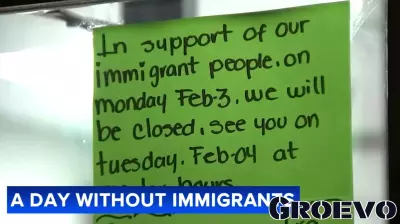 In support of our
immigrant people, on
monday Feb-3, we will
be closed, see you on
tuesday, Feb-04 at
hours
A DAY WITHOUT IMMIGRANTS
GROEVO